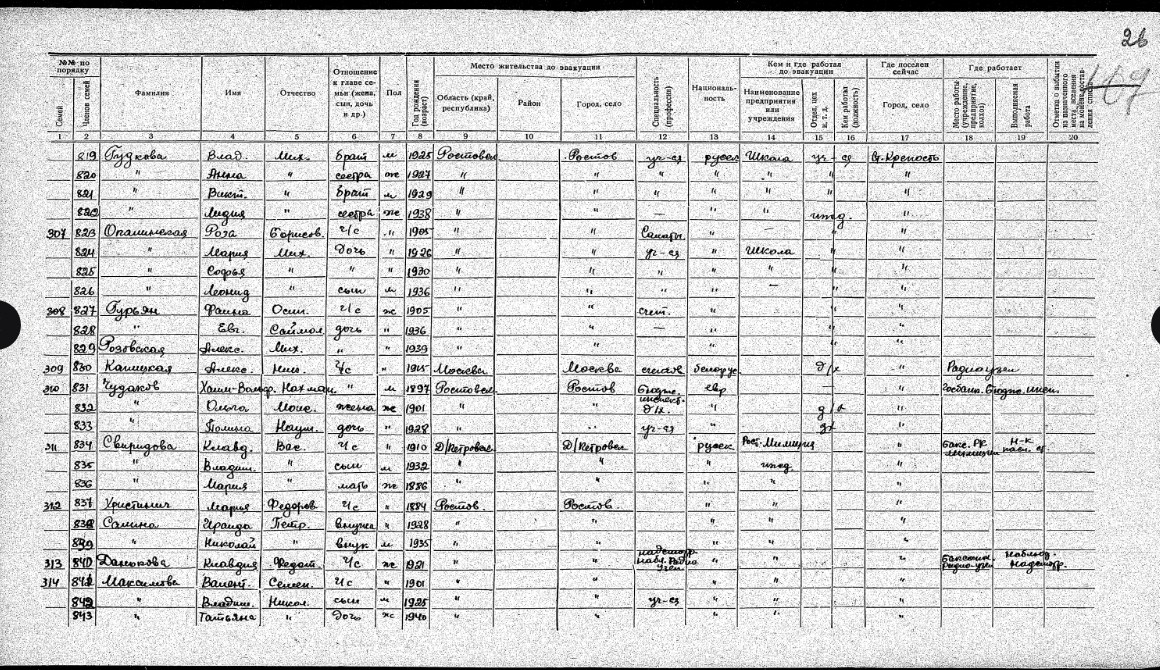 26
№№ по порядку
Семей
Членов семей
Фамилия
Имя
Отчество
Отношение к главе семьи (жена, сын, дочь и др.)
Пол
Год рождения (возраст)
Место жительства до эвакуации
Область (край, республика)
Район
Город, село
Специальность (профессия)
Национальность
Кем и где работал до эвакуации
Наименование предприятия или учреждения
Отдел, цех и т. д.
Кем работал (должность)
Где поселен сейчас
Город, село
Где работает
Место работы (учреждение, предприятие, колхоз)
Выполняемая работа
1 2 3 4 5 6 7 8 9 10 11 12 13 14 15 16 17 18 19 20
819 Гудкова Влад. Мих. брат м 1925 Ростовск Ростов уч-ся русск Школа уч-ся Ст. Крепость
820 " Анна " сестра ж 1927 " " " " " " "
821 " Викт. " брат м 1929 " " " " " " "
822 " Лидия " сестра ж 1938 " " — " " ижд. "
307 823 Опалинская Роза Борисов. Ч/с " 1905 " " " — " "
824 " Мария Мих. Дочь " 1926 " " уч-ся " Школа " "
825 " Софья " " " 1930 " " " " " " "
826 " Леонид " сын м 1936 " " " — " "
308 827 Гурьян Фаина Осип. Ч/с ж 1905 " " счет. " " "
828 " Евг. дочь " 1936 " " — " " "
829 Розовская Алекс. Мих. " " 1939 " " " " "
309 830 Алекс. Ник. Ч/с " Москвска Москва белорус Д/х " Радиоузел
310 831 Чудаков Нахман " м 1897 Ростовск. Ростов евр — "
832 " Ольга Моис. жена ж 1901 " " Д/х. " д/х "
833 " Полина Наум. дочь " 1928 " " уч-ся " "
311 834 Свиридова Клавд. Вас. Ч/с " 1910 Д/Петровск Д/Петровск русск Рост. Милиция "
835 " Владим. " сын м 1932 " " " ижд "
836 " Мария мать ж 1886 " " "
312 837 Христинич Мария Федоров Ч/с " 1884 Ростов. Ростов. " " "
838 Салина Ираида Петр. внучка " 1928 " " " " "
839 " Николай " внук м 1935 " " " " "
313 840 Данюкова Клавдия Федот. Ч/с ж 1921 " " " " "
314 841 Максимова Валент. Семен. Ч/с " 1901 " " " " "
842 " Владим. Никол. сын м 1925 " " уч-ся " " "
843 " Татьяна " дочь ж 1940 " " " " "